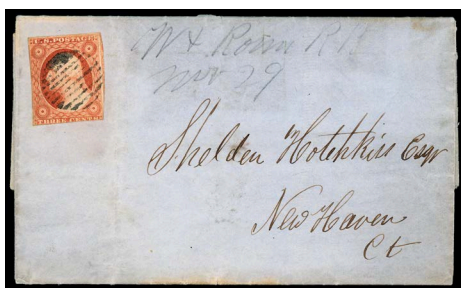 U.S. POSTAGE
THREE CENTS
W & Roun R R
Nov 29
Shelden Hotchkiss Esqr
New Haven
Ct